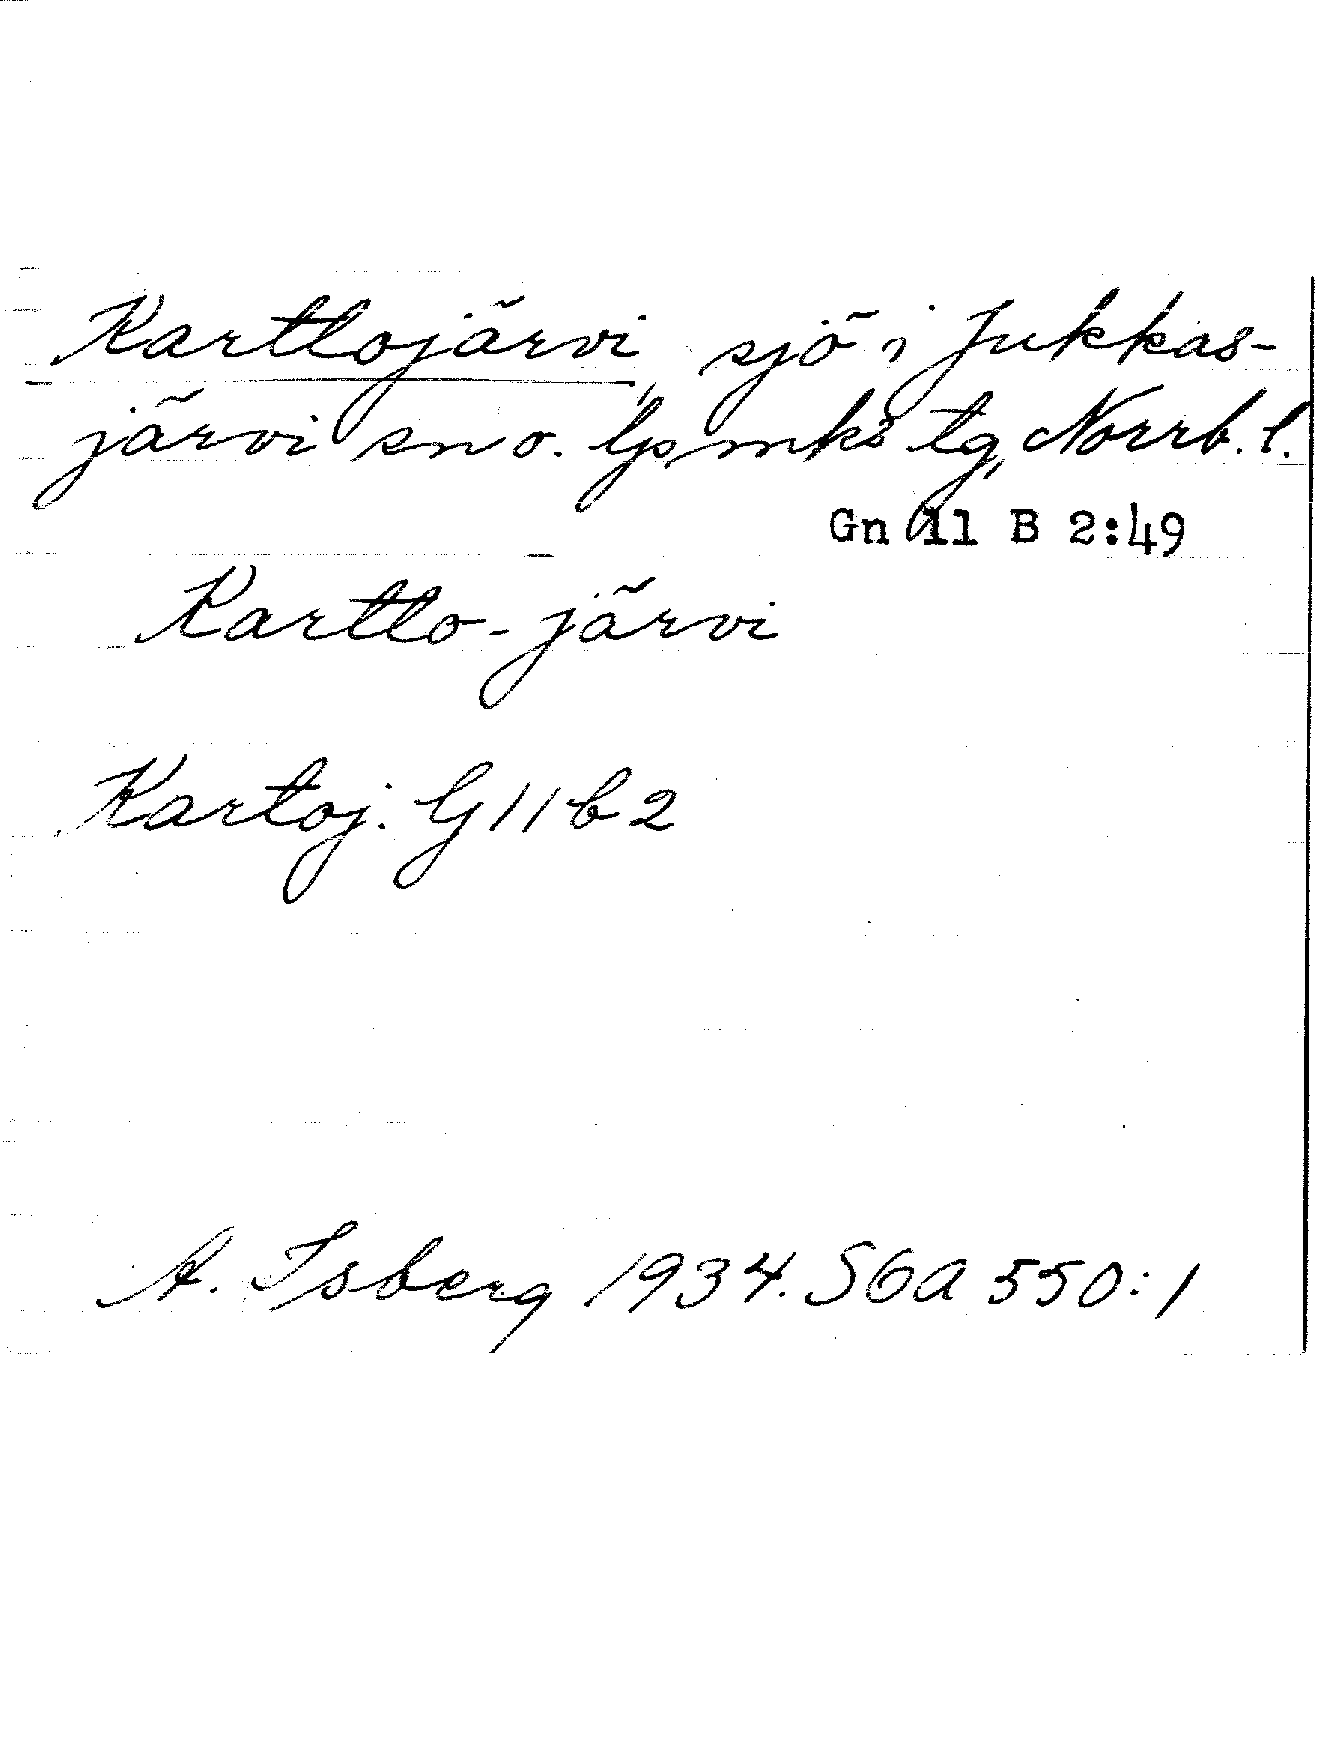 Karttojärvi, sjö i Jukkas-
järvi sn o. lpmks tg, Norrb. l.
Gn 11 B 2:49
Kartto-järvi
Kartoj. G 11 b 2
A. Isberg 1934. SGA 550:1